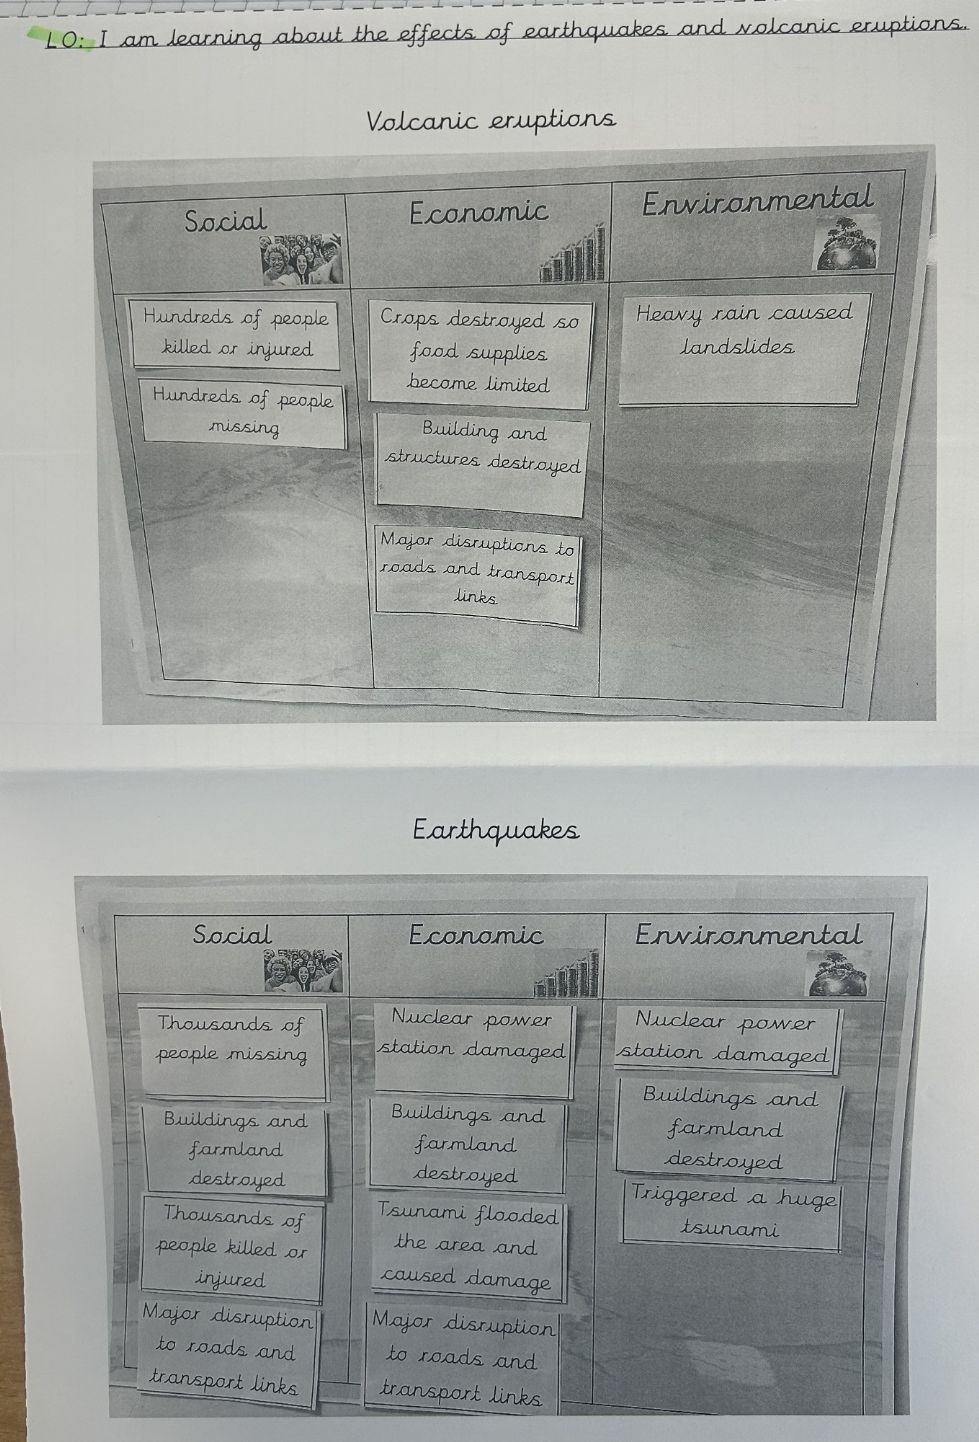 LO: I am learning about the effects of earthquakes and volcanic eruptions.
Volcanic eruptions
Social
Economic
Environmental
Hundreds of people
killed or injured
Hundreds of people
missing
Crops destroyed so
food supplies
become limited
Building and
structures destroyed
Major disruptions to
roads and transport
links
Heavy rain caused
landslides
Earthquakes
Social
Economic
Environmental
Thousands of
people missing
Buildings and
farmland
destroyed
Thousands of
people killed or
injured
Major disruption
to roads and
transport links
Nuclear power
station damaged
Buildings and
farmland
destroyed
Tsunami flooded
the area and
caused damage
Major disruption
to roads and
transport links
Nuclear power
station damaged
Buildings and
farmland
destroyed
Triggered a huge
tsunami